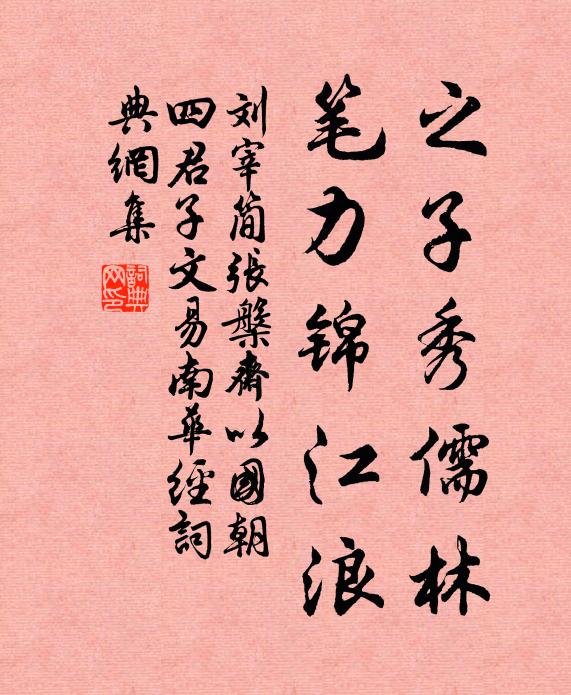 之子秀儒林
笔力锦江浪
刘宰简张槃斋以國朝
四君子文易南华經詞
典網集
詞典网印